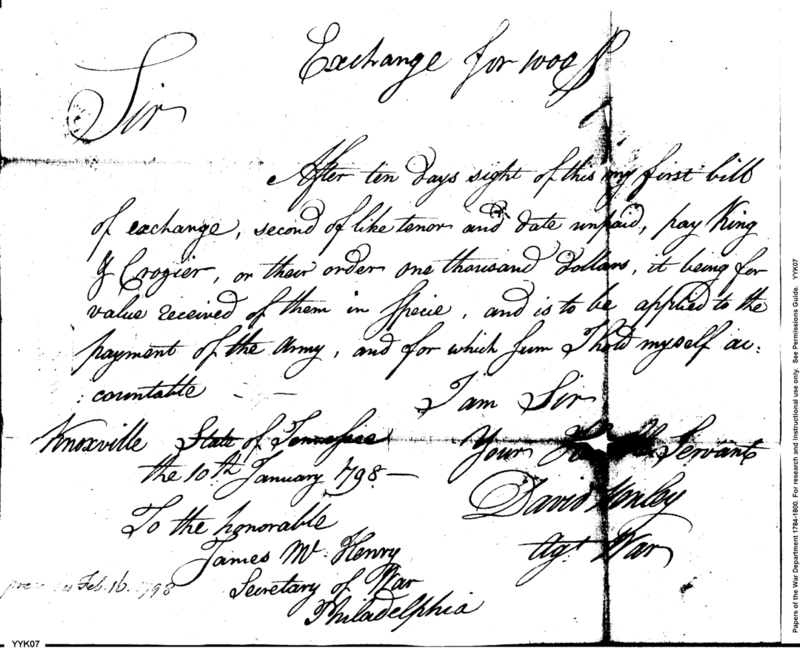 Exchange for 1000 $
Sir
After ten days sight of this my first bill
of exchange, second of like tenor and date unpaid, pay King
& Crozier, or their order one thousand dollars, it being for
value received of them in specie, and is to be applied to the
payment of the army, and for which sum I hold myself ac:
:countable
I am Sir
Knoxville State of Tennessee
Your Servant
the 10th January 1798
David Henley
To the honorable
Agt War
James Mc Henry
Feb. 16. 1798
Secretary of War
Philadelphia
YYK07
Papers of the War Department 1784-1800. For research and instructional use only. See Permissions Guide. YYK07